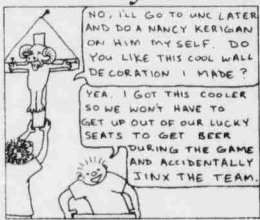 NO, I'LL GO TO UNC LATER
AND DO A NANCY KERIGAN
ON HIM MYSELF. DO
YOU LIKE THIS COOL WALL
DECORATION I MADE?
YEA. I GOT THIS COOLER
SO WE WON'T HAVE TO
GET UP OUT OF OUR LUCKY
SEATS TO GET BEER
DURING THE GAME
AND ACCIDENTALLY
JINX THE TEAM.